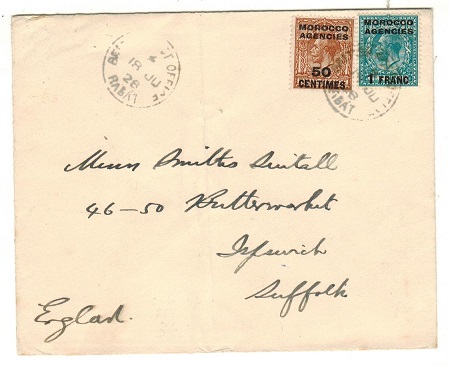 BRITISH POST OFFICE
18 JU
28
RABAT
MOROCCO
AGENCIES
50
CENTIMES
MOROCCO
AGENCIES
1 FRANC
Messrs Smiths Suitall
46-50 Buttermarket
Ipswich
Suffolk
England.